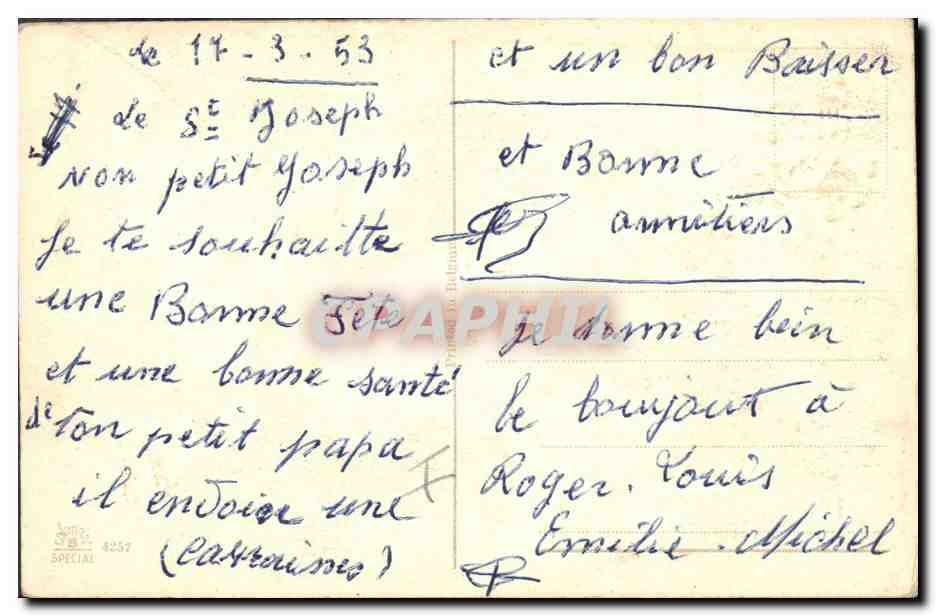 le 17-3-53
de St Joseph
Mon petit Joseph
Je te souhaitte
une Bonne Fête
et une bonne santé
de ton petit papa
il envoie une
(Carraisses)
et un bon Baisser
et Bonne
je donne bein
le boujourt à
Roger. Louis
Emilie. Michel
Printed in Belgium
SPECIAL 4257
CPAPHIL